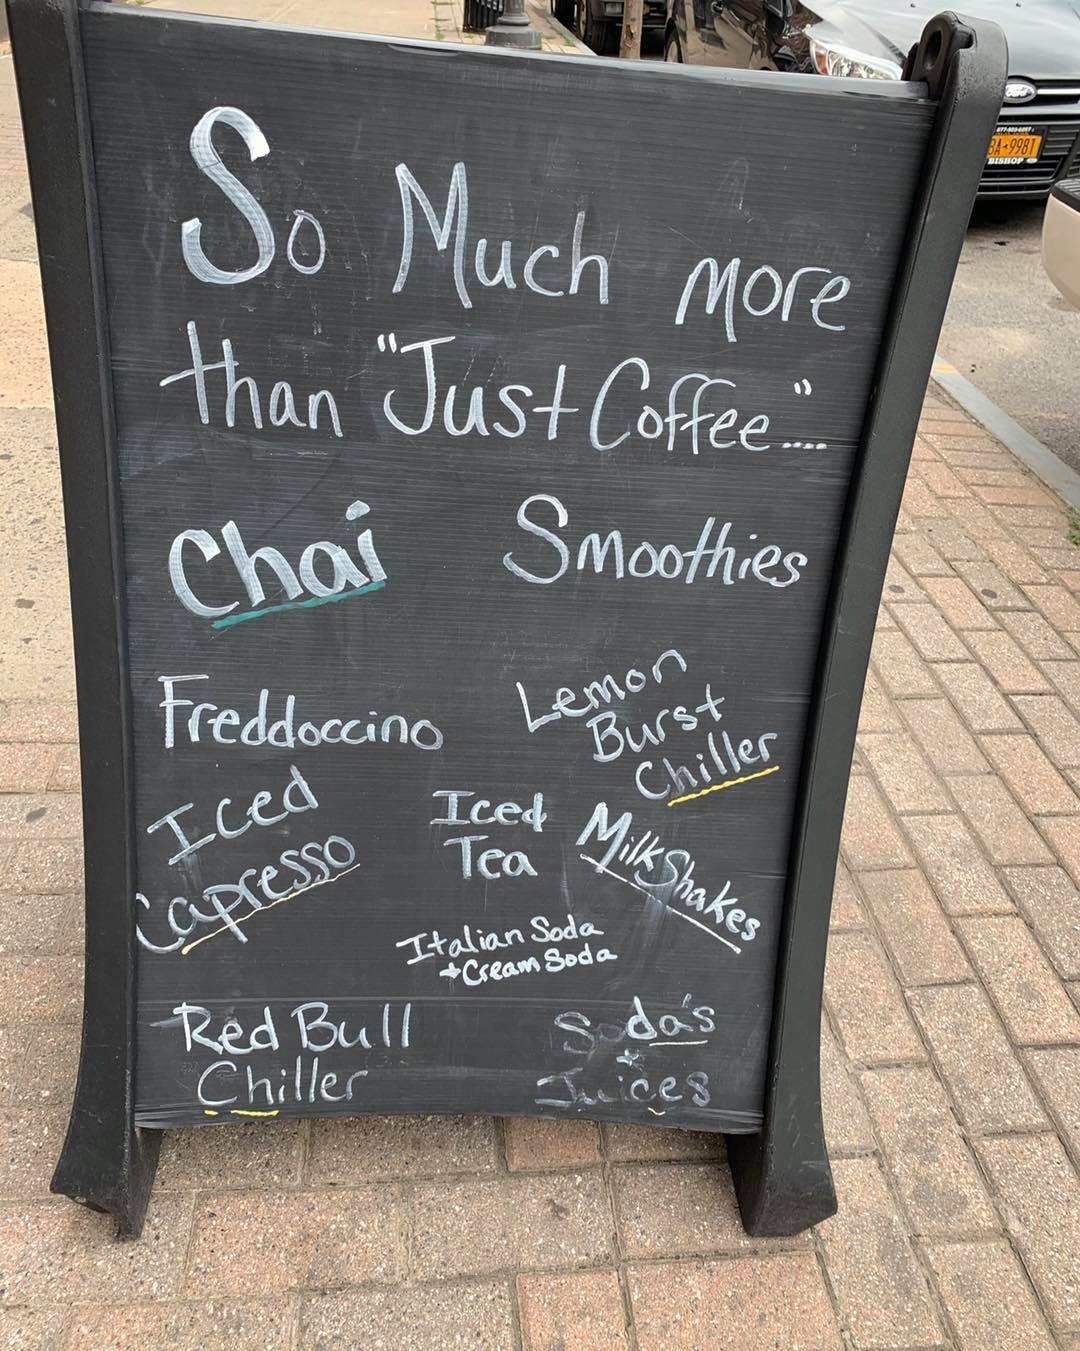 So Much more
than "Just Coffee...."
Chai
Smoothies
Freddoccino
Lemon
Burst
Chiller
Iced
Capresso
Iced
Tea
MilkShakes
Italian Soda
+ Cream Soda
Red Bull
Chiller
Soda's
+
Juices
Ford
BA-9981
BISHOP